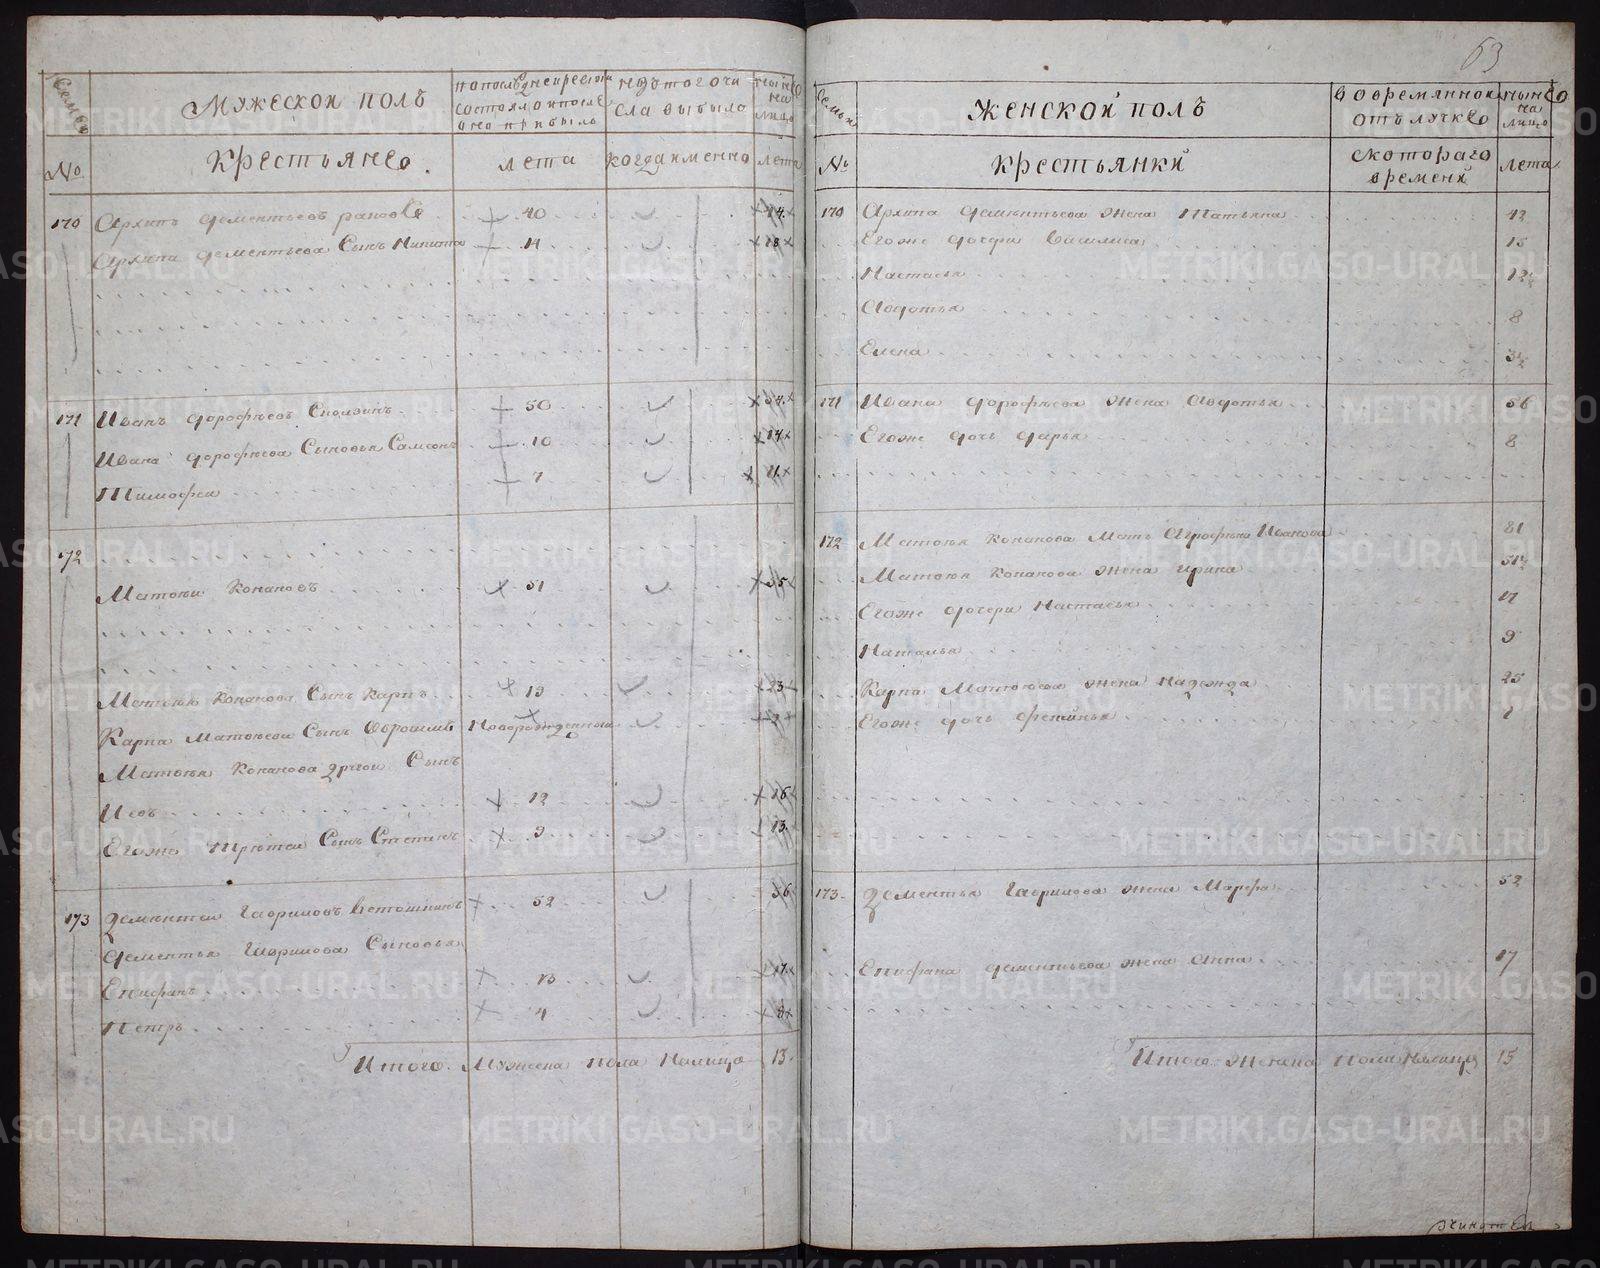 63
Семьи
Мужескои полъ
По последней ревизии состояло и после оно прибыло
Изъ того числа выбыло
Ныне на лицо
№
Крестьяне.
лета
когда именно
лета
170 Архипъ Дементьевъ 40 44
Архипа Дементьева Сынъ Никита 14 18
171 Иванъ Дорофѣевъ 50 54
Ивана Дорофѣева Сыновья Самсонъ 10 14
Тимофеи 7 11
172
Матвѣи Конановъ 51 55
Матвѣя Конанова Сынъ Карпъ 19 23
Карпа Матвѣева Сынъ Новорожденныи
Матвѣя Конанова другои Сынъ
Иовъ 12 16
Егоже Третеи Сынъ Степанъ 9 13
173 Дементеи Гавриловъ Ветошкинъ 52 56
Дементья Гаврилова Сыновья
Епифанъ 13 17
Петръ 4 8
Итого Мужеска пола Налицо 13.
Семьи
Женской полъ
Во временной отлучке
Ныне на лицо
№
Крестьянки
с котораго времени
лета
170 Архипа Дементьева жена Татьяна 42
Егоже дочери Василиса 15
Настасья 12
Авдотья 8
Елена
171 Ивана Дорофѣева жена Авдотья 56
Егоже дочь Дарья 8
172 Матвѣя Конанова Мать Агрофѣна Иванова 81
Матвѣя Конанова жена Ирина
Егоже дочери Настасья
Наталья 9
Карпа Матвѣева жена Надежда 25
Егоже дочь
173. Дементья Гаврилова жена Марфа 52
Епифана Дементьева жена Анна 17
Итого Женска пола Налицо 15
METRIKI.GASO-URAL.RU